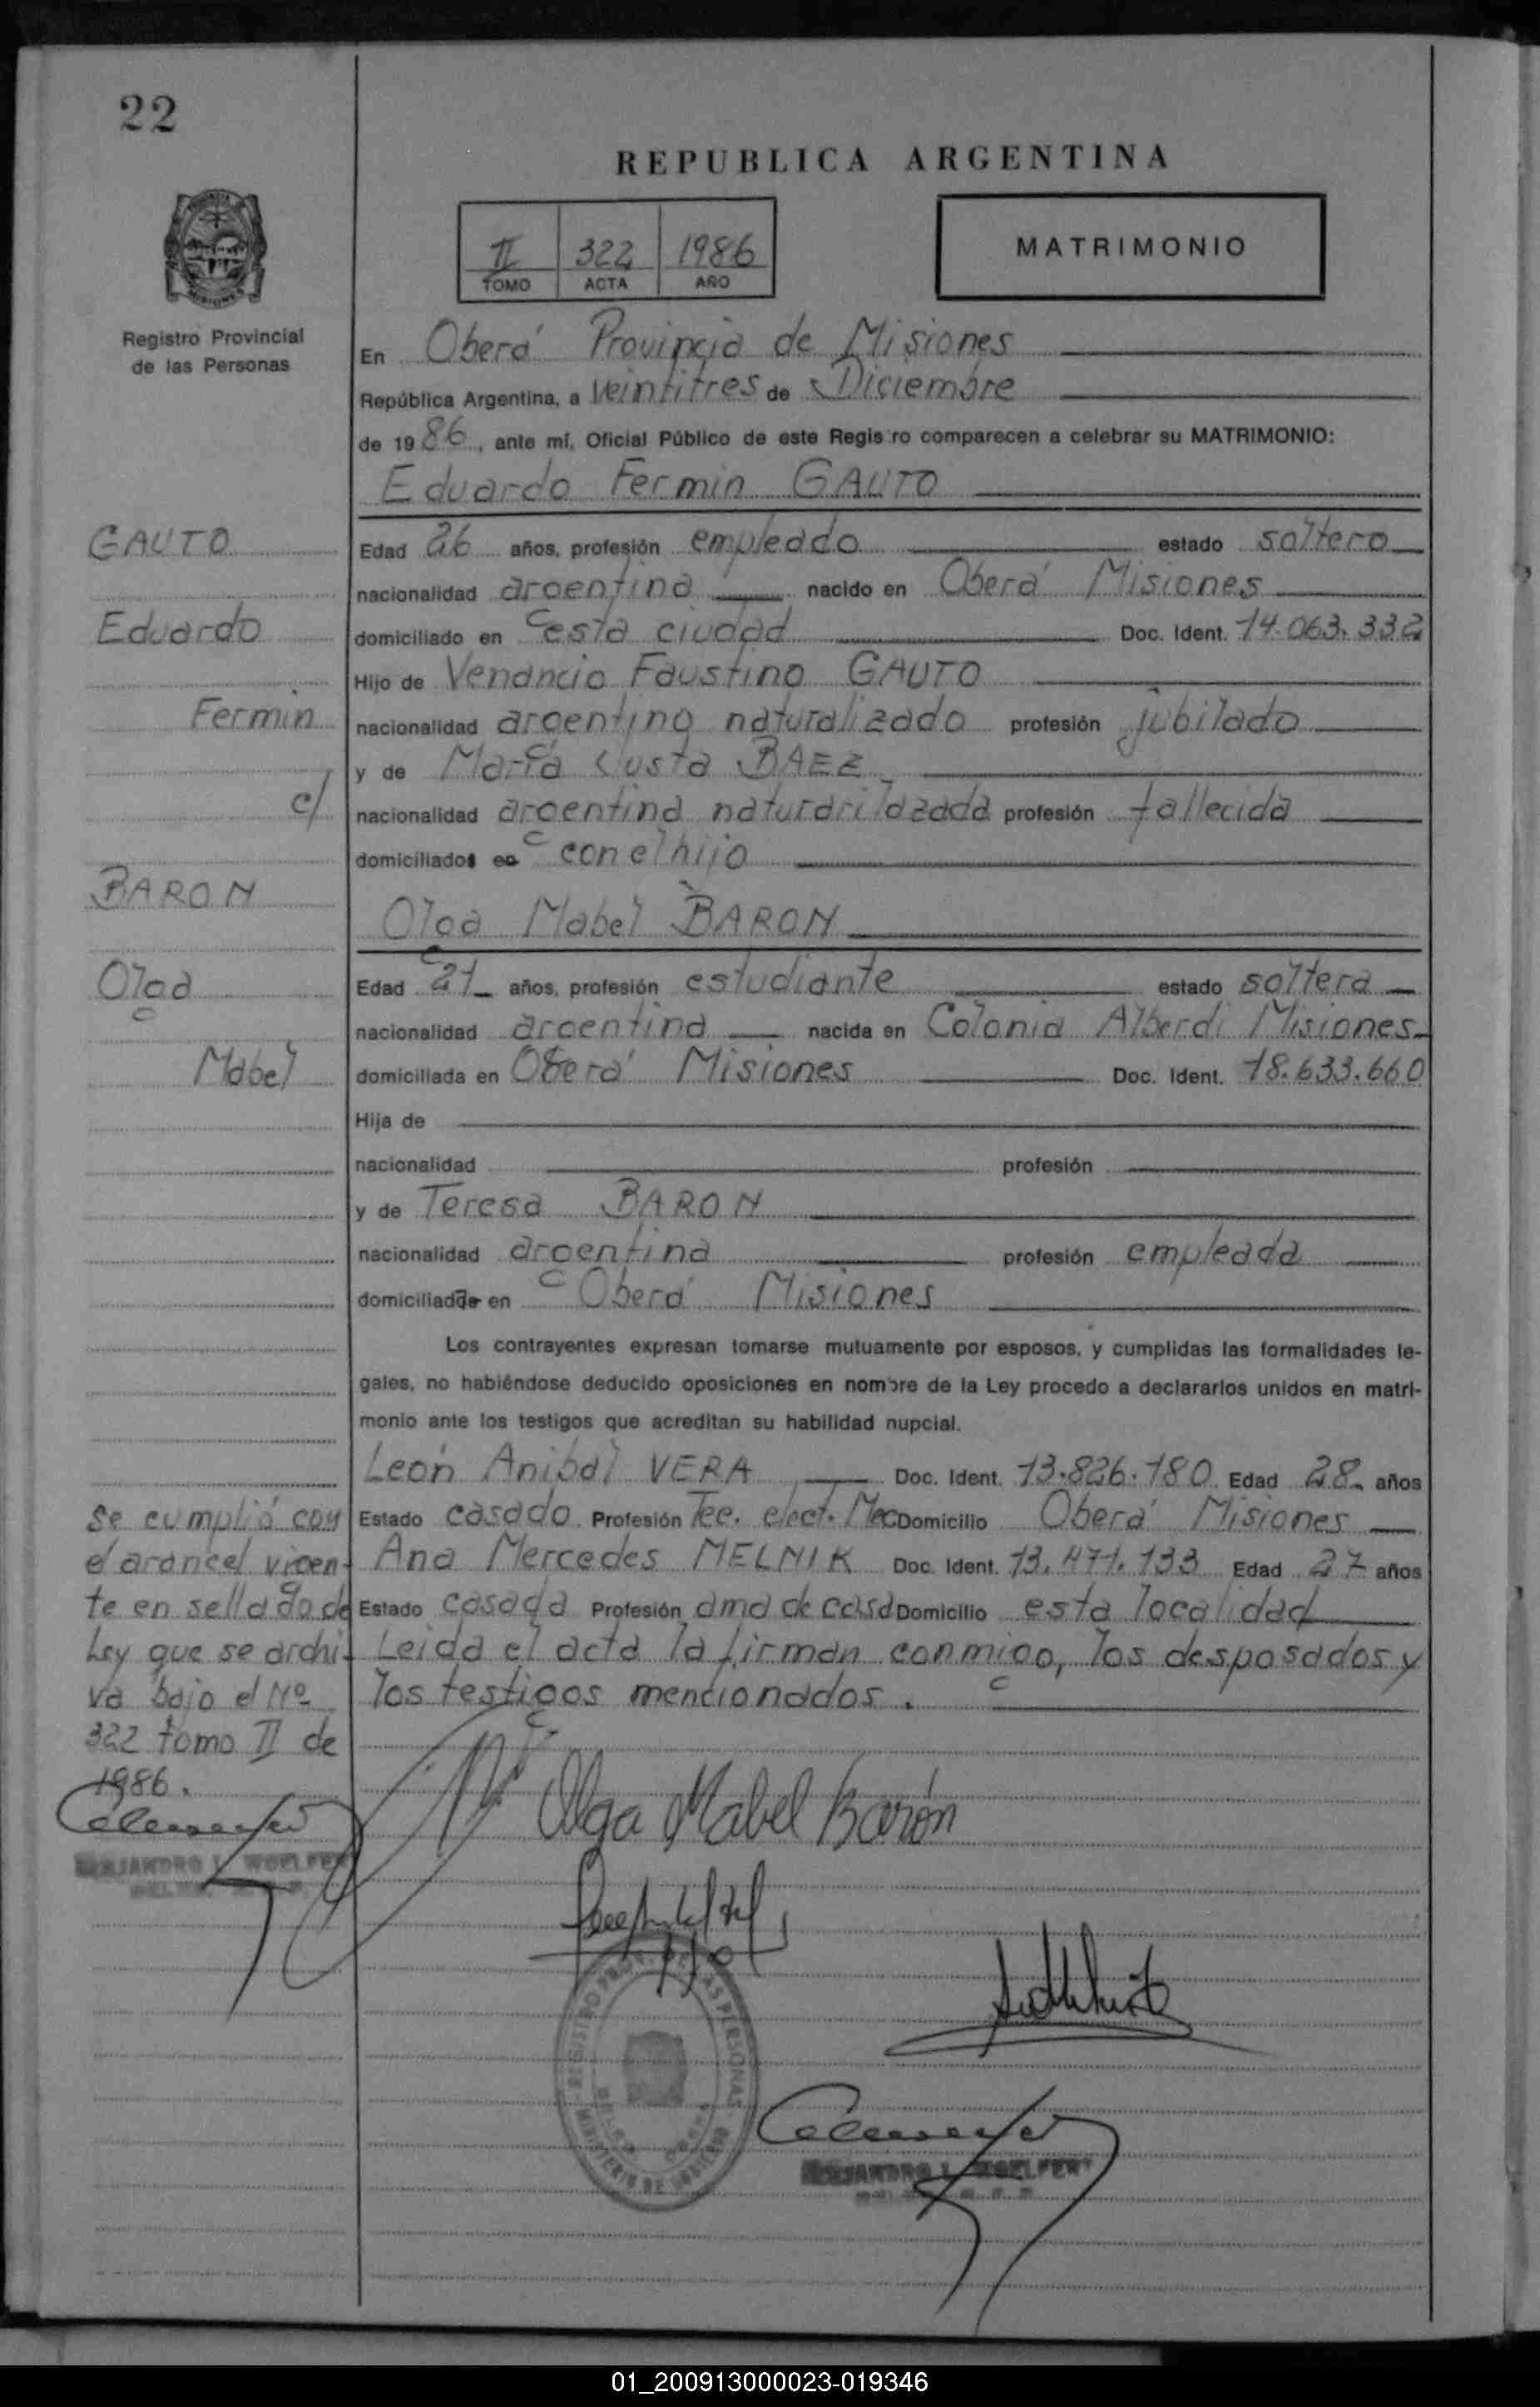 22
REPUBLICA ARGENTINA
II 322 1986
TOMO ACTA AÑO
MATRIMONIO
Registro Provincial
de las Personas
En Oberá Provincia de Misiones
República Argentina, a veintitres de Diciembre
de 1986, ante mí, Oficial Público de este Regis ro comparecen a celebrar su MATRIMONIO:
Eduardo Fermin GAUTO
GAUTO
Eduardo
Fermin
c/
BARON
Olga
Mabel
Edad 26 años, profesión empleado estado soltero
nacionalidad argentina nacido en Oberá Misiones
domiciliado en esta ciudad Doc. Ident. 14.063.332
Hijo de Venancio Faustino GAUTO
nacionalidad argentino naturalizado profesión jubilado
y de María Justa BAEZ
nacionalidad argentina naturarildazada profesión fallecida
domiciliados en con el hijo
Olga Mabel BARON
Edad 21 años, profesión estudiante estado soltera
nacionalidad argentina nacida en Colonia Alberdi Misiones
domiciliada en Oberá Misiones Doc. Ident. 18.633.660
Hija de
nacionalidad profesión
y de Teresa BARON
nacionalidad argentina profesión empleada
domiciliada en Oberá Misiones
Los contrayentes expresan tomarse mutuamente por esposos, y cumplidas las formalidades le-
gales, no habiéndose deducido oposiciones en nombre de la Ley procedo a declararlos unidos en matri-
monio ante los testigos que acreditan su habilidad nupcial.
León Anibal VERA Doc. Ident. 13.826.180 Edad 28 años
Estado casado Profesión Tec. elect. Mec Domicilio Oberá Misiones
Ana Mercedes MELNIK Doc. Ident. 13.471.133 Edad 27 años
Estado casada Profesión ama de casa Domicilio esta localidad
Leida el acta la firman conmigo, los desposados y
los testigos mencionados.
se cumplió con
el arancel vigen-
te en sellado de
Ley que se archi-
va bajo el Nº
322 tomo II de
1986.
Olga Mabel Barón
ALEJANDRO L. WOELFERT
REGISTRO PROV. DE LAS PERSONAS
MINISTERIO DE GOBIERNO
ALEJANDRO L. WOELFERT
01_200913000023-019346